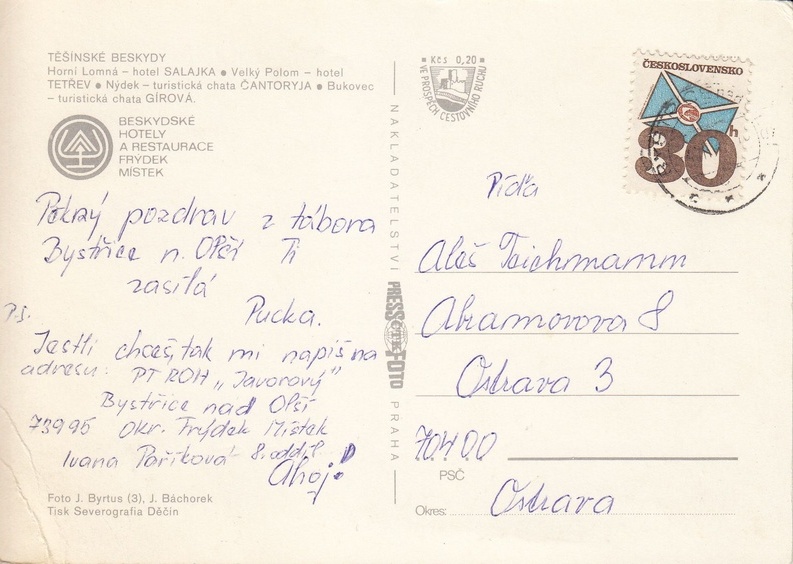 TĚŠÍNSKÉ BESKYDY
Horní Lomná – hotel SALAJKA ● Velký Polom – hotel
TETŘEV ● Nýdek – turistická chata ČANTORYJA ● Bukovec
– turistická chata GÍROVÁ.
BESKYDSKÉ
HOTELY
A RESTAURACE
FRÝDEK
MÍSTEK
pozdrav z tábora
Bystřice n. Olší Ti
zasílá
Pucka.
P.S.
Jestli chceš, tak mi napiš na
adresu: PT ROH „Javorový"
Bystřice nad Olší
73995 Okr. Frýdek Místek
Ivana Paříková 8. oddíl
Ahoj!
Foto J. Byrtus (3), J. Báchorek
Tisk Severografia Děčín
Kčs 0,20
VE PROSPĚCH CESTOVNÍHO RUCHU
NAKLADATELSTVÍ PRESSFOTO PRAHA
ČESKOSLOVENSKO
30h
Píďa
Aleš Teichmann
Abramovova 8
Ostrava 3
70400
PSČ
Okres: Ostrava